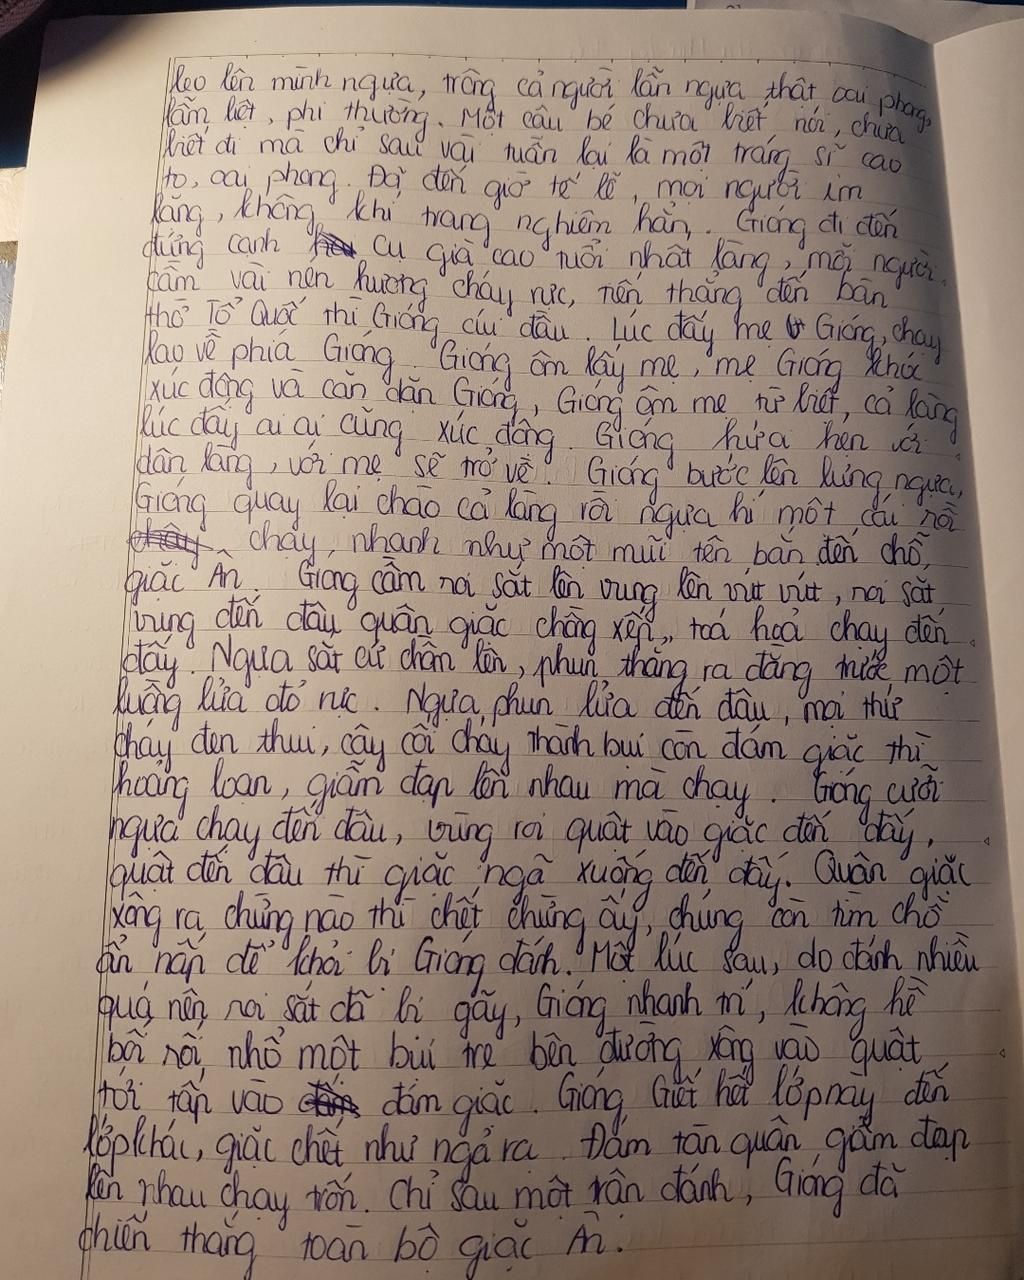 leo lên mình ngựa, trông cả người lẫn ngựa thật oai phong,
lẫm liệt, phi thường. Một cậu bé chưa biết nói, chưa
biết đi mà chỉ sau vài tuần lại là một tráng sĩ cao
to, oai phong. Đợi đến giờ tế lễ, mọi người im
lặng, không khí trang nghiêm hẳn. Gióng đi đến
đứng cạnh cụ già cao tuổi nhất làng, mỗi người
cầm vài nén hương cháy rực, tiến thẳng đến bàn
thờ Tổ Quốc thì Gióng cúi đầu. Lúc đấy mẹ Gióng, chạy
lao về phía Gióng. Gióng ôm lấy mẹ, mẹ Gióng khóc
xúc động và căn dặn Gióng, Gióng ôm mẹ từ biệt, cả làng
lúc đấy ai ai cũng xúc động. Gióng hứa hẹn với
dân làng, với mẹ sẽ trở về. Gióng bước lên lưng ngựa,
Gióng quay lại chào cả làng rồi ngựa hí một cái rồi
chạy, nhanh như một mũi tên bắn đến chỗ
giặc Ân. Giong cầm roi sắt lên vung lên vút vút, roi sắt
vung đến đâu quân giặc chồng xến, toá hoả chạy đến
đấy. Ngựa sắt cứ chồm lên, phun thẳng ra đằng trước một
luồng lửa đỏ rực. Ngựa phun lửa đến đâu, mọi thứ
cháy đen thui, cây cối cháy thành bụi còn đám giặc thì
hoảng loạn, giẫm đạp lên nhau mà chạy. Gióng cưỡi
ngựa chạy đến đâu, vung roi quật vào giặc đến đấy,
quật đến đâu thì giặc ngã xuống đến đấy. Quân giặc
xông ra chừng nào thì chết chừng ấy, chúng còn tìm chỗ
ẩn nấp để khỏi bị Gióng đánh. Một lúc sau, do đánh nhiều
quá nên roi sắt đã bị gãy, Gióng nhanh trí, không hề
bối rối, nhổ một bụi tre bên đường xông vào quật
tới tấp vào đám giặc. Gióng Giết hết lớp này đến
lớp khác, giặc chết như ngả ra. Đám tàn quân giẫm đạp
lên nhau chạy trốn. Chỉ sau một trận đánh, Gióng đã
chiến thắng toàn bộ giặc Ân.